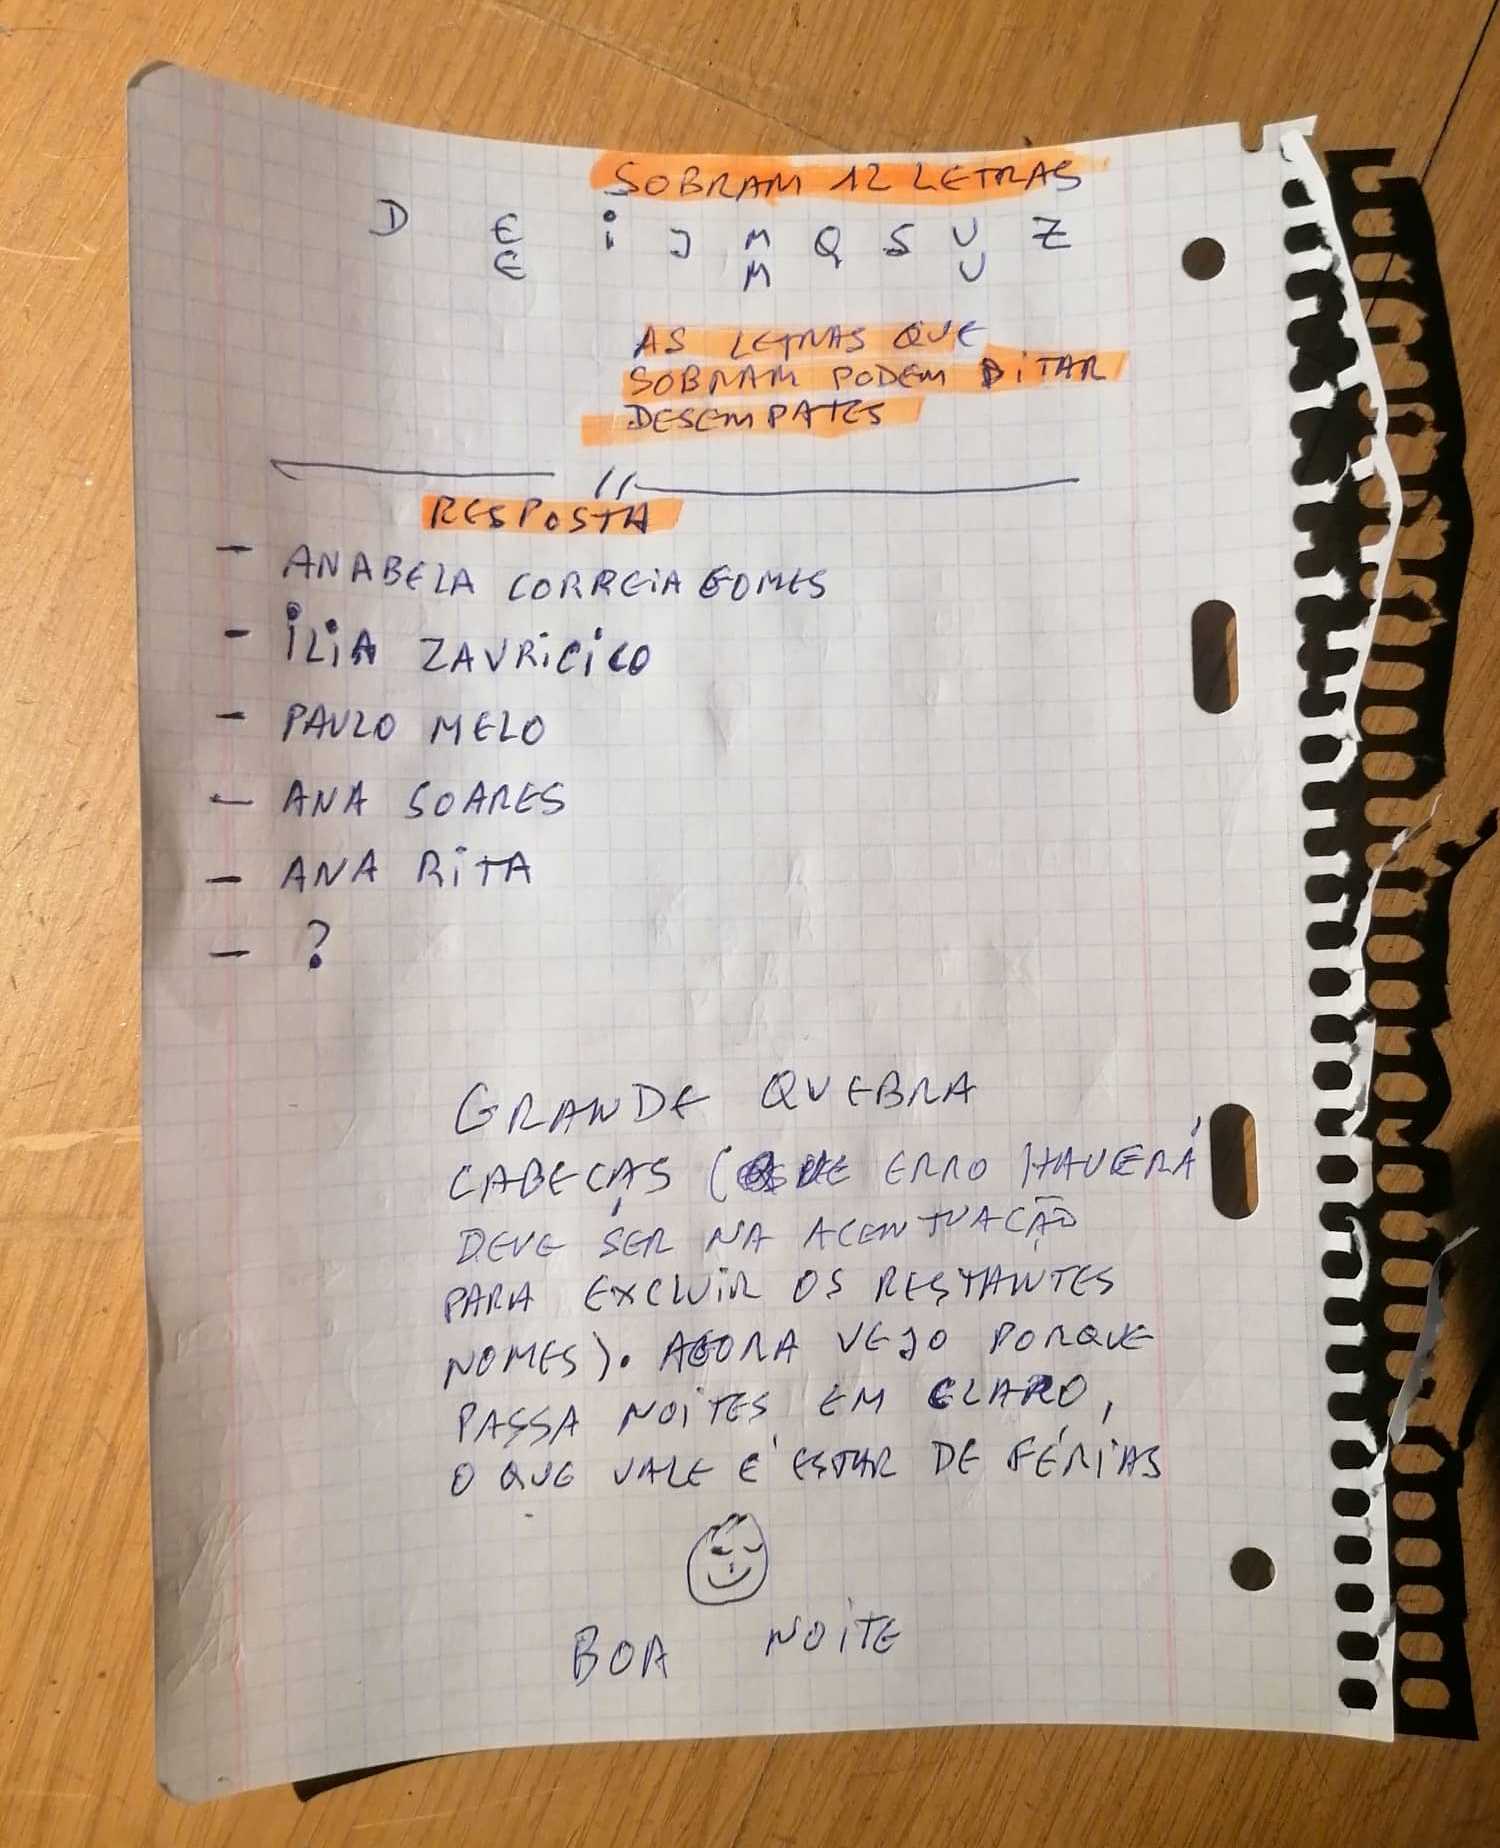 SOBRAM 12 LETRAS
D E i J M Q S U Z
E M U
AS LETRAS QUE
SOBRAM PODEM DITAR
DESEMPATES
RESPOSTA
- ANABELA CORREIA GOMES
- ILIA ZAVRICICO
- PAULO MELO
- ANA SOARES
- ANA RITA
- ?
GRANDE QUEBRA
CABEÇAS ( QUE ERRO HAVERÁ
DEVE SER NA ACENTUAÇÃO
PARA EXCLUIR OS RESTANTES
NOMES). AGORA VEJO PORQUE
PASSA NOITES EM CLARO,
O QUE VALE É ESTAR DE FÉRIAS
BOA NOITE